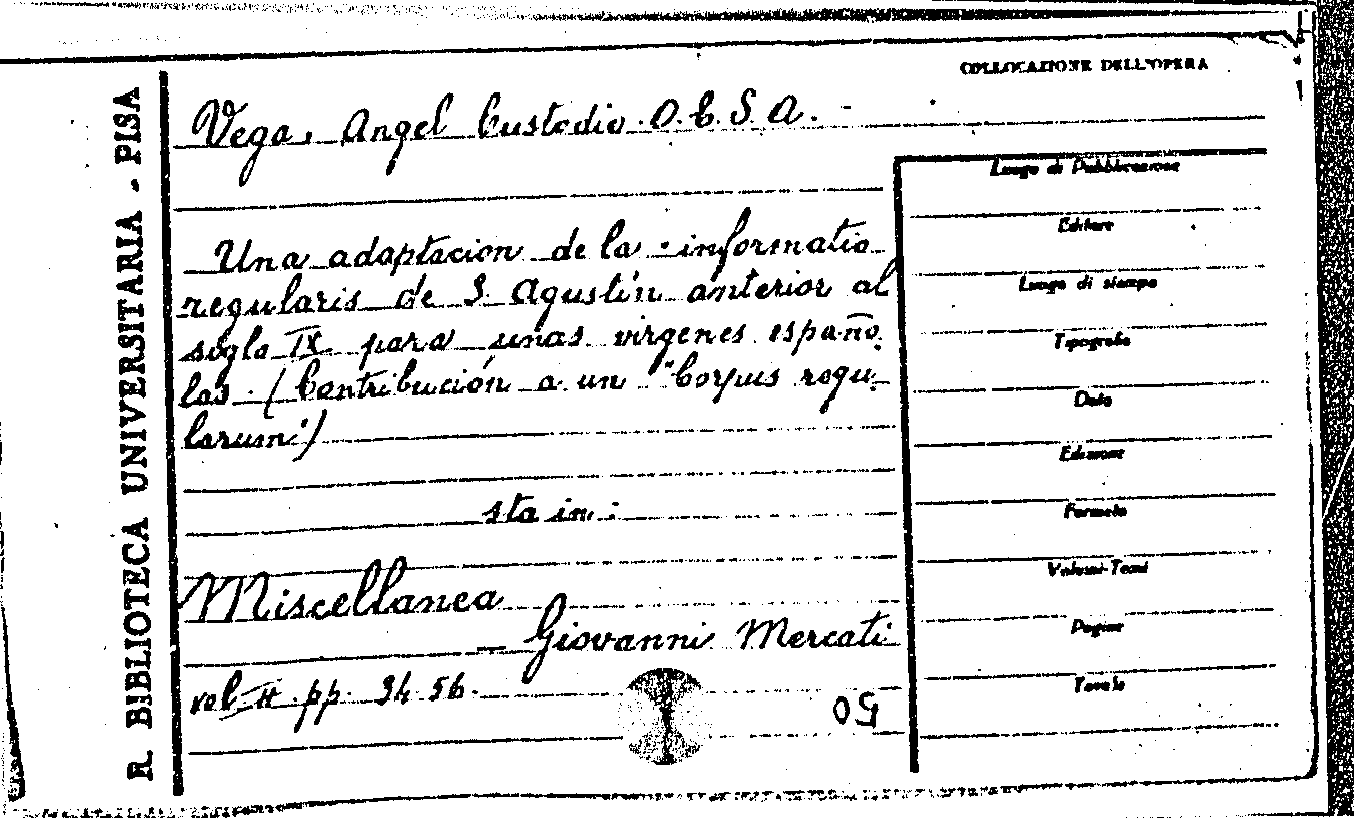 COLLOCAZIONE DELL'OPERA
R. BIBLIOTECA UNIVERSITARIA - PISA
Vega, Angel Custodio O.E.S.A. -
Una adaptacion de la "informatio
regularis de S. Agustín anterior al
siglo IX para unas virgenes españo
las. (Contribución a un "Corpus regu
larum")
sta in:
Miscellanea
Giovanni Mercati
vol II. pp. 34-56.
50
Luogo di Pubblicazione
Editore
Luogo di stampa
Tipografia
Data
Edizione
Formato
Volumi-Tomi
Pagine
Tavole